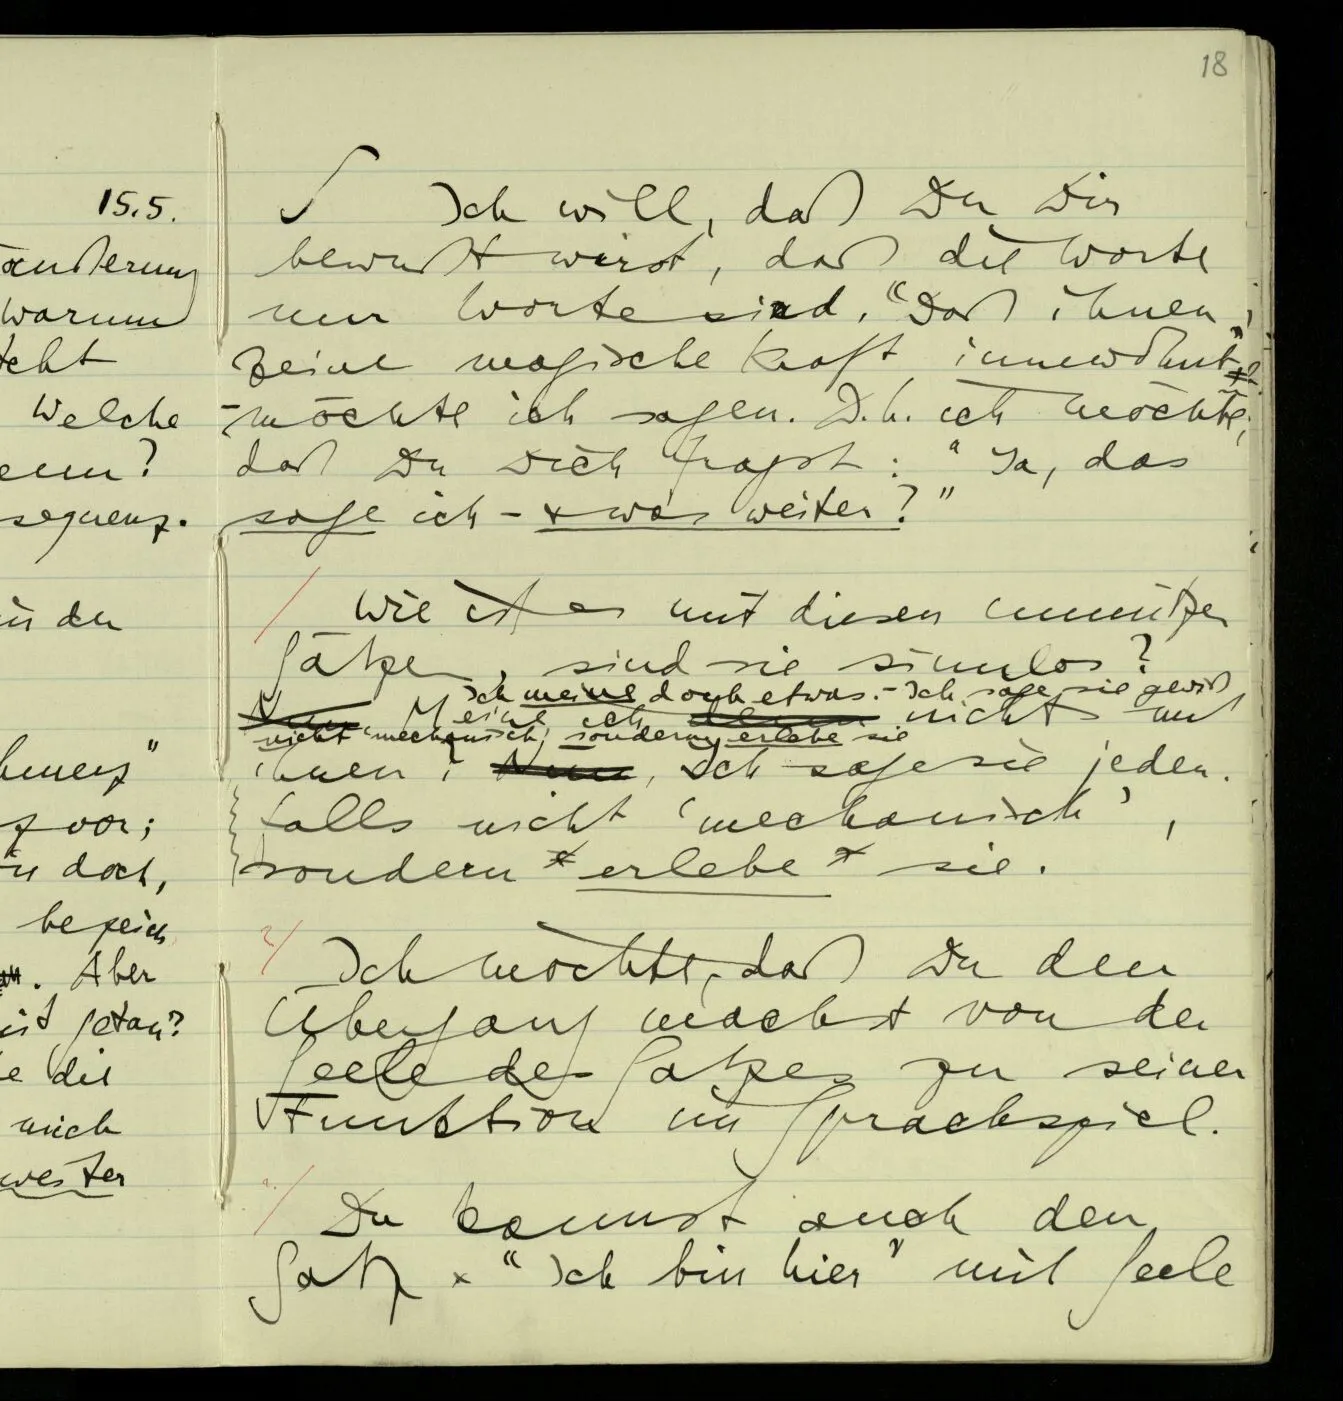 18
15.5.
änderung
warum
Welche
sequenz.
in den
vor;
in doch,
bezeich
. Aber
ist getan?
die
mich
weiter
Ich will, daß Du Dir
bewußt wirst, daß die Worte
nur Worte sind. "Daß ihnen
keine magische Kraft innewohnt"
möchte ich sagen. D.h. ich möchte,
daß Du Dich fragst: "Ja, das
sage ich – was weiter?"
Wie ist es mit diesen unnützen
Sätzen, sind sie sinnlos?
Ich meine doch etwas. – Ich sage sie gewiß
Meine ich denn nichts mit
nicht 'mechanisch', sondern erlebe sie
ihnen? Nun, Ich sage sie jeden-
falls nicht 'mechanisch',
sondern erlebe sie.
Ich möchte, daß Du den
Übergang machst von der
Seele des Satzes zu seiner
Funktion im Sprachspiel.
Du kannst auch den
Satz "Ich bin hier" mit Seele